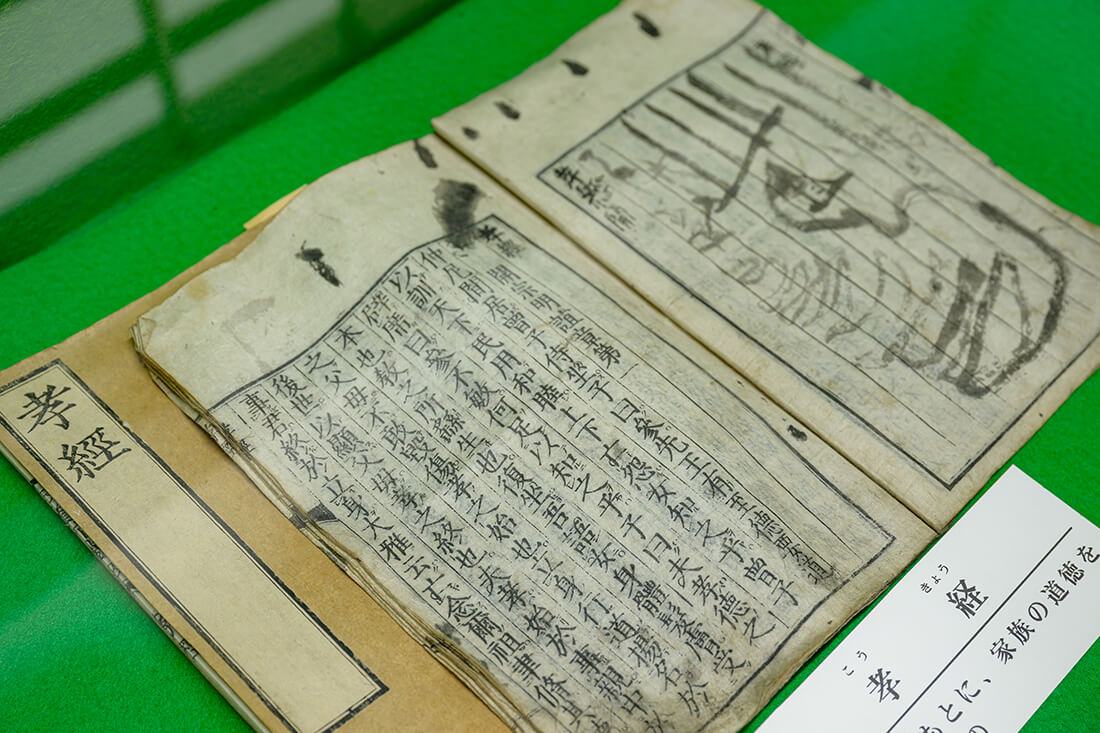 孝經
開宗明誼章第一
仲尼閒居曾子侍坐子曰參先王有至德要道
以訓天下民用和睦上下亡怨女知之乎曾子
辟席曰參不敏何足以知之乎子曰夫孝德之
本也教之所繇生也復坐吾語女身體髮膚受
之父母不敢毀傷孝之始也立身行道揚名於
後世以顯父母孝之終也夫孝始於事親中於
事君終於立身大雅云亡念爾祖聿脩其
孝経
こう きょう
家族の道徳を
もとに、
の